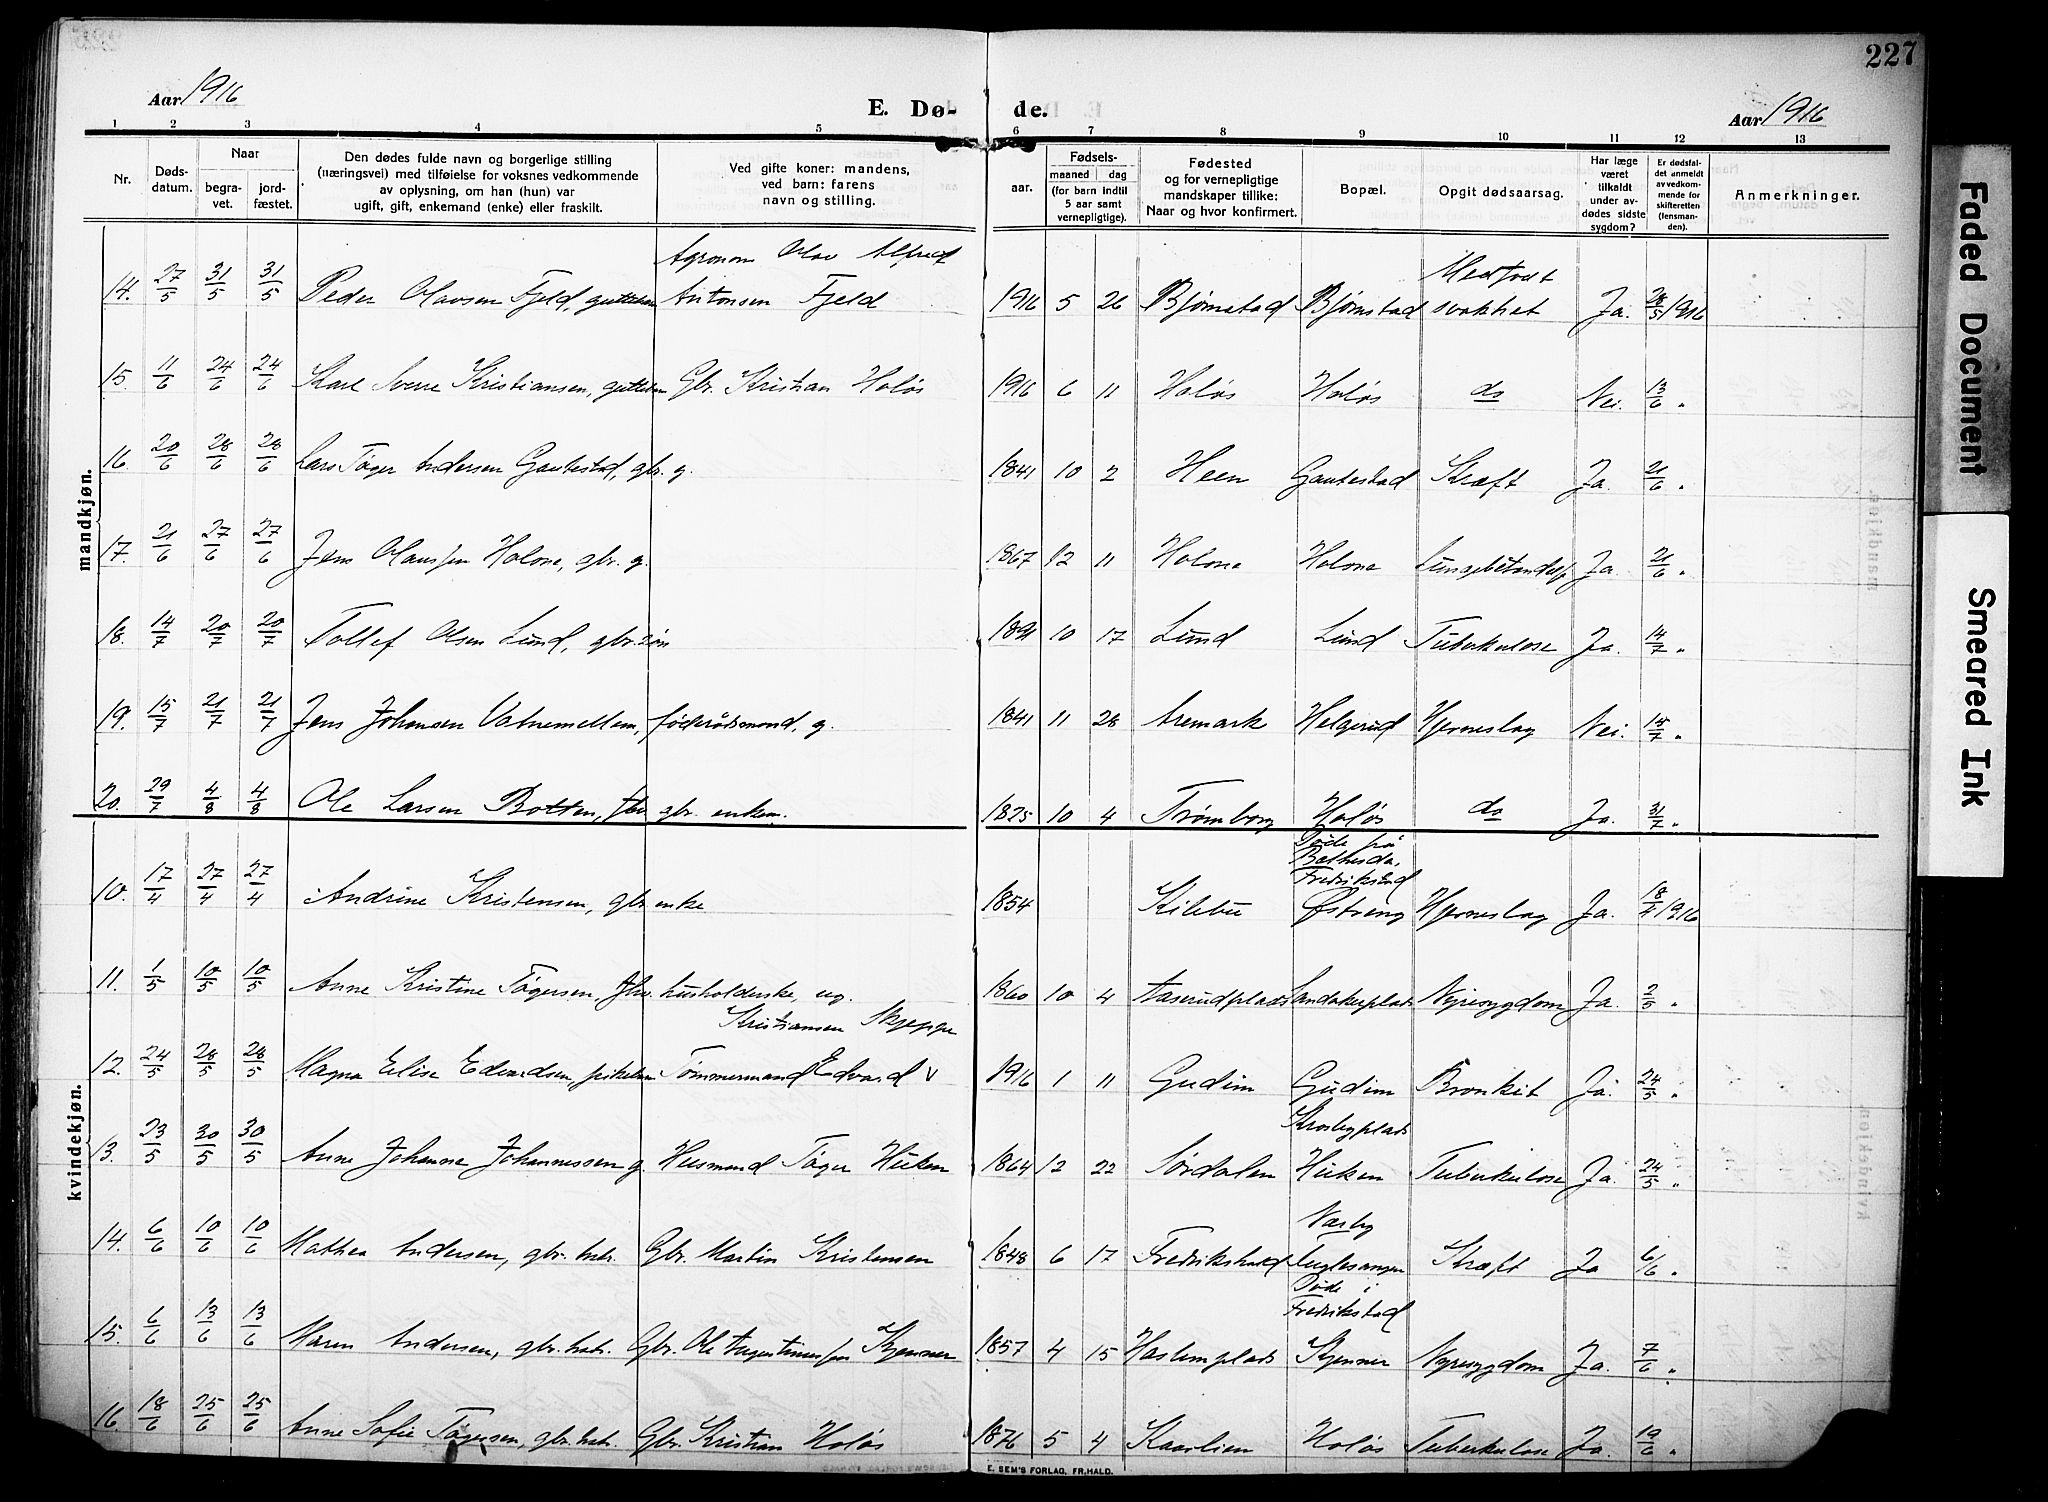 227
Aar 1916
E. Dø- de.
Aar 1916
1 2 3 4 5 6 7 8 9 10 11 12 13
Nr.
Døds-
datum.
Naar
begra-
vet.
jord-
fæstet.
Den dødes fulde navn og borgerlige stilling
(næringsvei) med tilføielse for voksnes vedkommende
av oplysning, om han (hun) var
ugift, gift, enkemand (enke) eller fraskilt.
Ved gifte koner: mandens,
ved barn: farens
navn og stilling.
aar.
Fødsels-
maaned dag
(for barn indtil
5 aar samt
vernepligtige).
Fødested
og for vernepligtige
mandskaper tillike:
Naar og hvor konfirmert.
Bopæl.
Opgit dødsaarsag.
Har læge
været
tilkaldt
under av-
dødes sidste
sygdom?
Er dødsfal-
det anmeldt
av vedkom-
mende for
skifteretten
(lensman-
den).
Anmerkninger.
mandkjøn.
Agronom Olav Alfred Medfødt
14. 27/5 31/5 31/5 Peder Olavsen Fjeld, guttebarn Antonsen Fjeld 1916 5 26 Bjørnstad Bjørnstad svakhet Ja. 28/5 1916
15. 11/6 24/6 24/6 Karl Sverre Kristiansen, guttebarn Gbr. Kristian Holøs 1916 6 11 Holøs Holøs do Nei. 13/6 "
16. 20/6 28/6 28/6 Lars Tøger Andersen Gautestad, gbr. g. 1841 10 2 Heen Gautestad Kræft Ja. 21/6 "
17. 21/6 27/6 27/6 Jens Olaussen Holone, gbr. g. 1867 12 11 Holone Holone Lungebetændelse Ja. 21/6 "
18. 14/7 20/7 20/7 Tollef Olsen Lund, gbr. søn 1891 10 17 Lund Lund Tuberkulose Ja. 14/7 "
19. 15/7 21/7 21/7 Jens Johansen Vatnemellem, føderådsmand, g. 1841 11 28 Aremark Helgerud Hjerneslag Nei. 15/7 "
20. 29/7 4/8 4/8 Ole Larsen Botten, fhv. gbr. enkem. 1825 10 4 Trømborg Holøs do Ja. 31/7 "
kvindekjøn.
Døde på
Bethesda,
Fredrikstad
10. 17/4 27/4 27/4 Andrine Kristensen, gbr. enke 1854 Kilebu Østreng Hjerneslag Ja. 18/4 1916
11. 1/5 10/5 10/5 Anne Kristine Tøgersen, fhv. husholderske, ug. 1860 10 4 Aaserudplads Sandakerplads Nyresygdom Ja. 2/5 "
Kristiansen Skjeppe
12. 24/5 28/5 28/5 Magna Elise Edvardsen, pikebarn Tømmermand Edvard v 1916 1 11 Gudim Gudim Bronkit Ja. 24/5 "
Krosbyplads
13. 23/5 30/5 30/5 Anne Johanne Johannessen g. Husmand Tøger Huken 1864 12 22 Sørdalen Huken Tuberkulose Ja. 24/5 "
Nærby
14. 6/6 10/6 10/6 Mathea Andersen, gbr. hstr. Gbr. Martin Kristensen 1848 6 17 Fredrikshald Fuglesangen Kræft Ja 6/6 "
Døde i
Fredrikstad
15. 6/6 13/6 13/6 Maren Andersen, gbr. hstr. Gbr. Ole Augustinussen Kjenner 1857 4 15 Haslemplads Kjenner Nyresygdom Ja. 7/6 "
16. 18/6 25/6 25/6 Anne Sofie Tøgersen, gbr. hstr. Gbr. Kristian Holøs 1876 5 4 Kaarlien Holøs Tuberkulose Ja. 19/6 "
E. SEM'S FORLAG, FR.HALD.
Faded Document
Smeared Ink